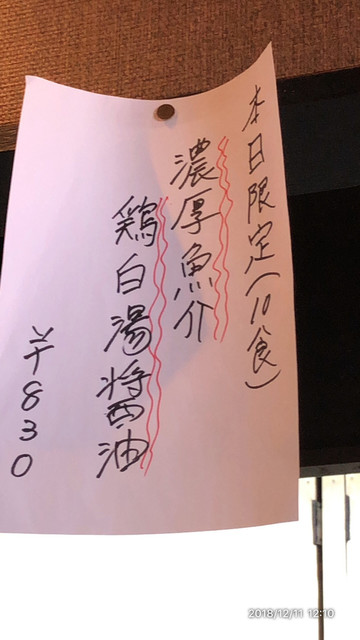 本日限定(10食)
濃厚魚介
鶏白湯醤油
￥830
2018/12/11 12:10